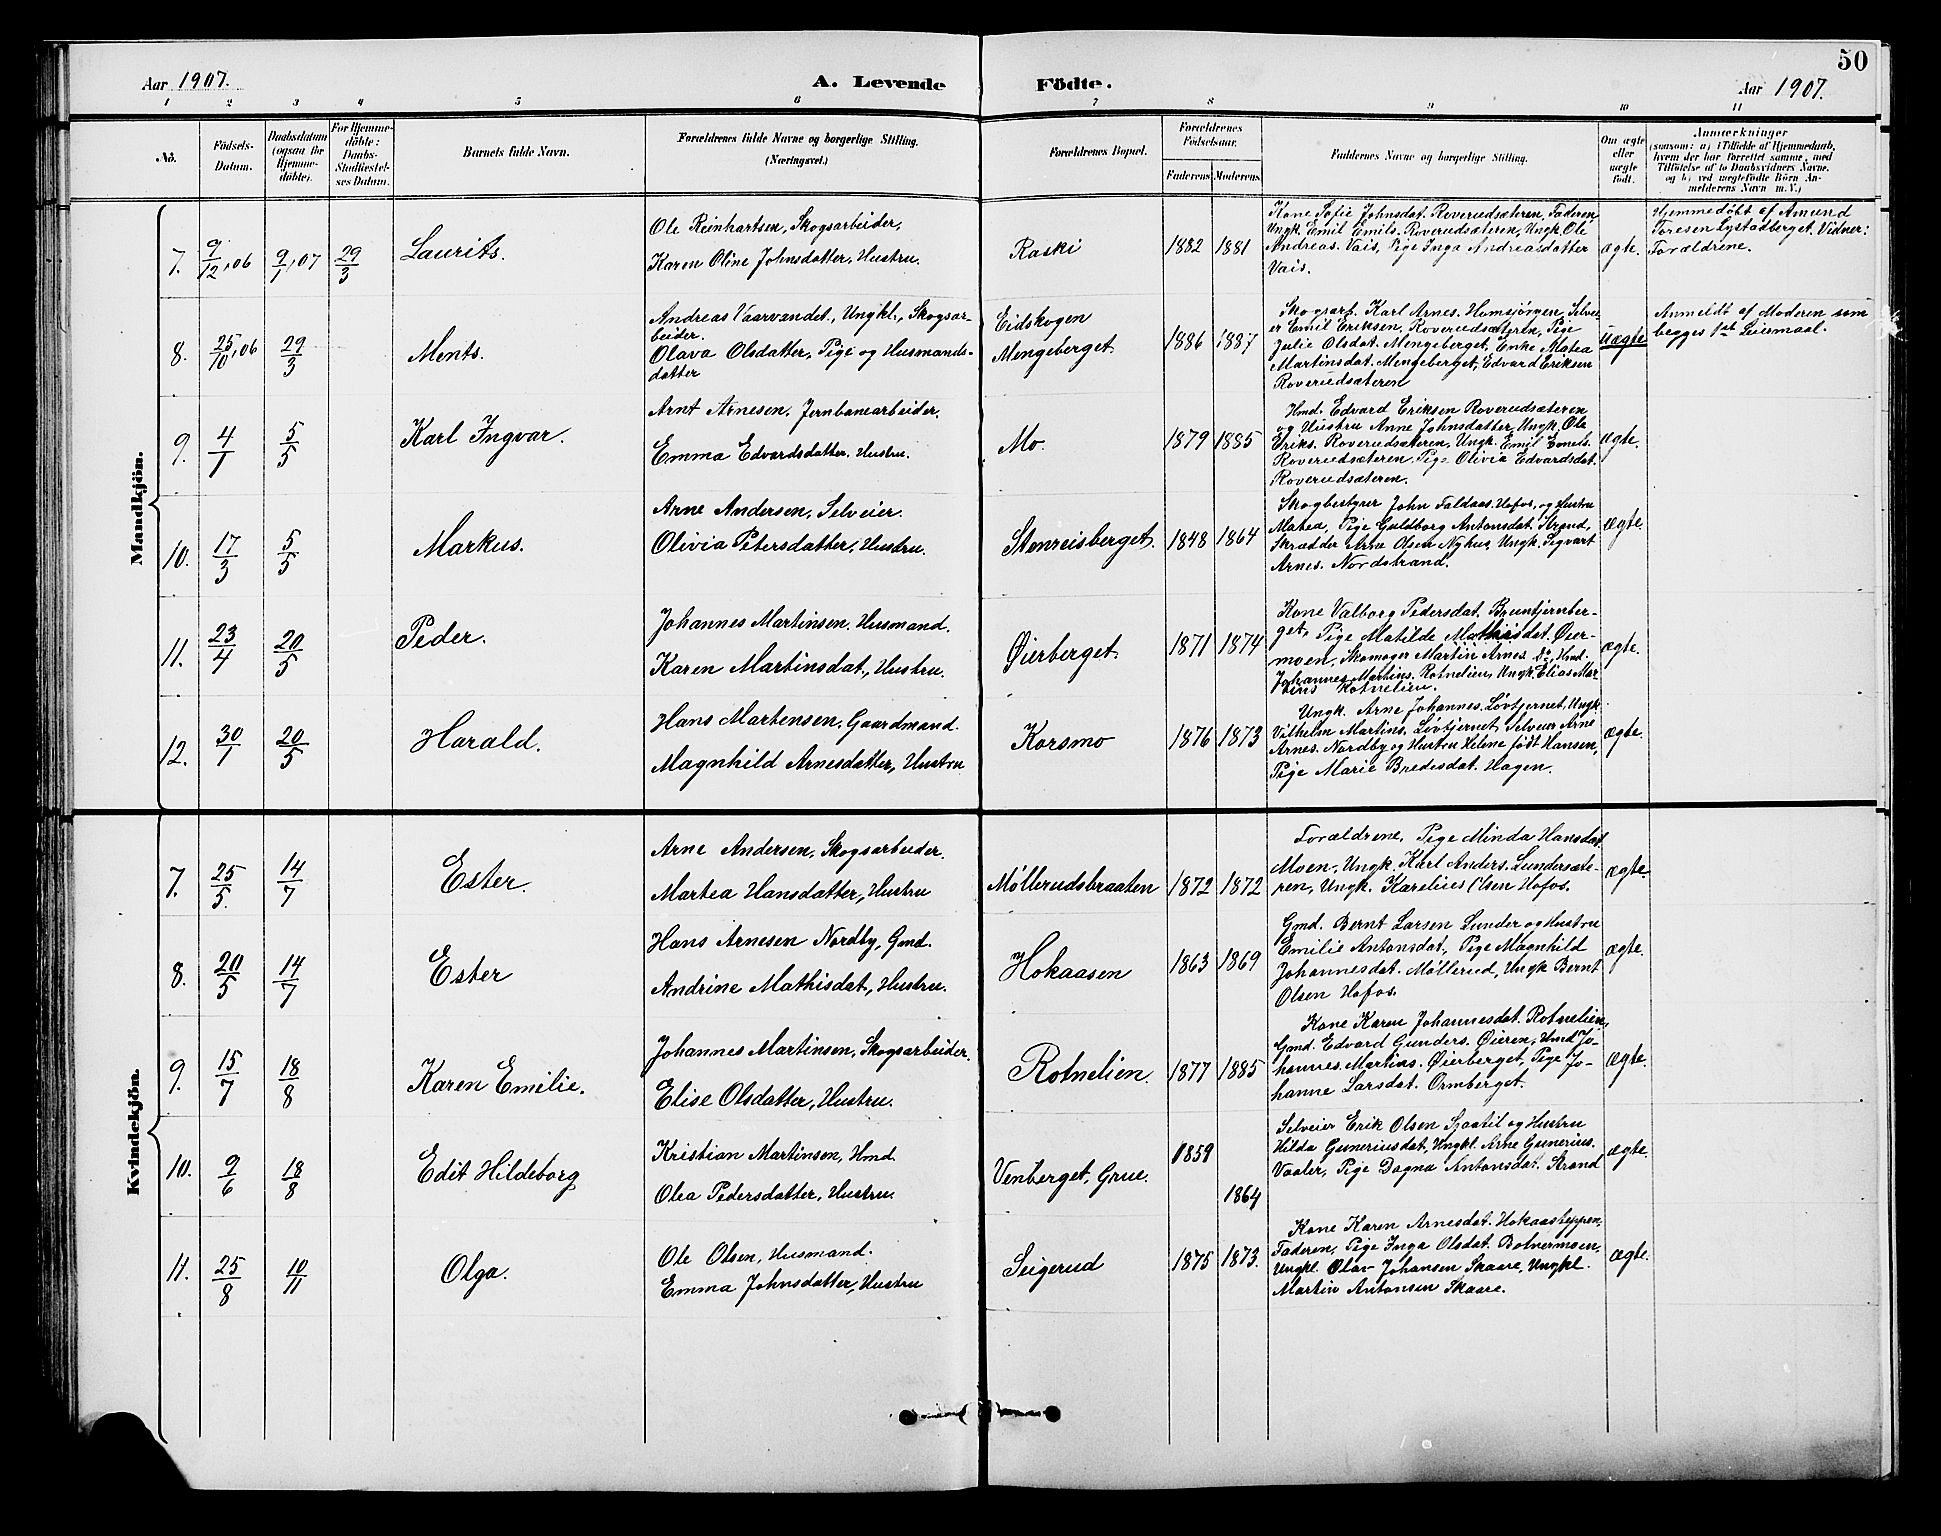 50
Aar 1907.
A. Levende Födte.
Aar 1907.
1 2 3 4 5 6 7 8 9 10 11
No.
Födsels-
Datum.
Daabsdatum
(ogsaa for
Hjemme-
döbte).
For Hjemme-
döbte:
Daabs-
Stadfæstel-
ses Datum.
Barnets fulde Navn.
Forældrenes fulde Navne og borgerlige Stilling.
(Næringsvei.)
Forældrenes Bopæl.
Forældrenes
Födselsaar.
Faderens
Moderens
Faddernes Navne og borgerlige Stilling.
Om ægte
eller
uægte
födt.
Anmærkninger
(saasom: a) i Tilfælde af Hjemmedaab,
hvem der har forrettet samme, med
Tilföielse af to Daabsvidners Navne.
og b) ved uægtefödte Börn An-
melderens Navn m. V.)
Mandkjön.
7. 9/12,06 9/1,07 29/3
Laurits.
Ole Reinhartsen, Skogsarbeider,
Karen Oline Johnsdatter, Hustru.
Raski
1882 1881
Kone Sofie Johnsdat. Roverudsæteren, Faderen
Ungk. Emil Emils. Roverudsæteren, Ungk. Ole
Andreas. Vais, Pige Inga Andreasdatter
Vais.
ægte.
Hjemmedöbt af Amund
Toresen Lystadberget. Vidner:
Forældrene.
8. 25/10,06 29/3
Ments.
Andreas Vaarvandet, Ungkl., Skogsar-
beider.
Olava Olsdatter, Pige og Husmands-
datter
Eidskogen
Mengeberget.
1886 1887
Skogsarb. Karl Arnes. Homsjørgen, Selvei-
er Emil Eriksen, Roverudsæteren, Pige
Julie Olsdat. Mengeberget, Enke Matea
Martinsdat. Mengeberget, Edvard Eriksen
Roverudsæteren
Uægte
Anmeldt af Moderen som
begges 1ste Leiermaal.
9. 4/1 5/5
Karl Ingvar.
Arnt Arnesen, Jernbanearbeider.
Emma Edvardsdatter, Hustru.
Mo.
1879 1885
Hmd. Edvard Eriksen Roverudsæteren
og Hustru Anne Johnsdatter, Ungk. Ole
Eriks. Roverudsæteren, Ungk. Emil Emils.
Roverudsæteren, Pige Olivia Edvardsdat.
Roverudsæteren.
Ægte.
10. 17/3 5/5
Markus.
Arne Andersen, Selveier.
Olivia Petersdatter, Hustru.
Stenreisberget.
1848 1864
Skogbestyrer John Faldaas. Hofos, og Hustru
Matea, Pige Guldborg Antonsdat. Strand,
Skrædder Arne Olsen Nyhus, Ungk. Sigvart
Arnes. Nordstrand.
Ægte.
11. 23/4 20/5
Peder.
Johannes Martinsen, Husmand.
Karen Martinsdat, Hustru.
Øierberget.
1871 1874
Kone Valborg Pedersdat. Bruntjernber-
get, Pige Matilde Mathisdat. Øier-
moen, Skomager Martin Arnes. Hmd.
Johannes Martins. Rotnelien, Ungk. Elias Mar
tins Rotnelien.
Ægte.
12. 30/1 20/5
Harald.
Hans Martensen, Gaardmand.
Magnhild Arnesdatter, Hustru
Korsmo
1876 1873
Ungk. Arne Johannes. Løvtjernet, Ungk.
Vilhelm Martins. Løvtjernet, Selveier Arne
Arnes. Nordby og Hustru Helene født Hansen,
Pige Marie Bredesdat. Hagen.
Ægte.
Kvindekjön.
7. 25/5 14/7
Ester.
Arne Andersen, Skogsarbeider.
Martea Hansdatter, Hustru
Møllerudsbraaten
1872 1872
Forældrene, Pige Minda Hansdat.
Moen, Ungk. Karl Anders. Lundersæte-
ren, Ungk. Karelius Olsen Hofos.
Ægte.
8. 20/5 14/7
Ester
Hans Arnesen Nordby, Gmd.
Andrine Mathisdat, Hustru.
Hokaasen
1863 1869
Gmd. Bernt Larsen Lunder og Hustru
Emilie Antonsdat, Pige Magnhild
Johannesdat. Møllerud, Ungk Bernt
Olsen Hofos.
ægte.
9. 15/7 18/8
Karen Emilie.
Johannes Martinsen, Skogsarbeider.
Elise Olsdatter, Hustru.
Rotnelien.
1877 1885
Kone Karen Johannesdat. Rotnelien,
Gmd. Edvard Gunders. Øieren, Hmd. Jo-
hannes. Martins. Øierberget, Pige Jo-
hanne Larsdat. Ormberget.
Ægte.
10. 9/6 18/8
Edit Hildeborg
Kristian Martinsen, Hmd.
Olea Pedersdatter, Hustru.
Venberget, Grue.
1859 1864
Selveier Erik Olsen Sjaatil og Hustru
Hilda Guneriusdat, Ungkl. Arne Gunerius.
Vaaler, Pige Dagna Antonsdat. Strand
ægte.
11. 25/8 10/11
Olga.
Ole Olsen, Husmand.
Emma Johnsdatter, Hustru
Seigerud
1875 1873.
Kone Karen Arnesdat. Hokaasteppen,
Faderen, Pige Inga Olsdat. Botnermoen,
Ungkl. Olav Johansen Skaare, Ungkl.
Martin Antonsen Skaare.
Ægte.